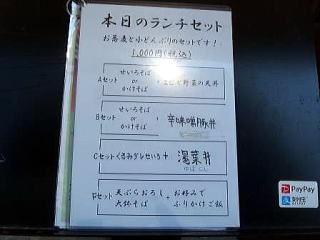 本日のランチセット
お蕎麦と小どんぶりのセットです！
1,000円(税込)
Aセット せいろそば or かけそば + と野菜の天丼
Bセット せいろそば or かけそば + 辛味噌豚丼
Cセット くるみダレせいろ + 湯葉丼
ゆばどん
天ぷらおろし + お好みで
セット そば ふりかけご飯
PayPay